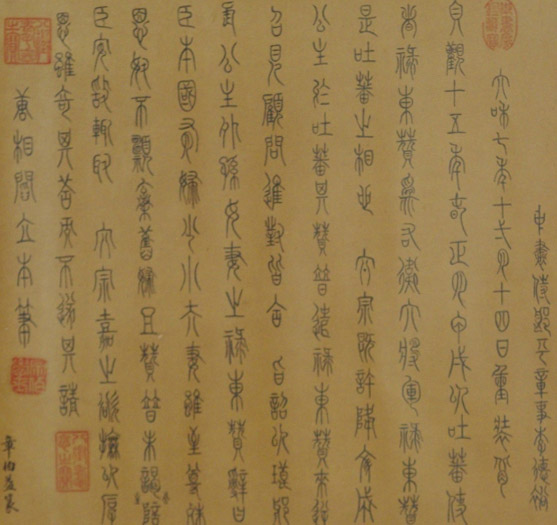 中書侍郎平章事李德裕
太和七年十一月十四日重裝背
貞觀十五年春正月甲戌以吐蕃使
者祿東贊為右衛大將軍祿東贊
是吐蕃之相也 太宗既許降文成
公主於吐蕃其贊普遣祿東贊來逆
召見顧問進對皆合 旨詔以琅邪
長公主外孫女妻之祿東贊辭曰
臣本國有婦少小夫妻雖至尊殊
恩奴不願棄舊婦且贊普未謁陪
臣安敢輒取 太宗嘉之欲撫以厚
恩雖奇其答而不遂其請
唐相閻立本筆
章伯益篆